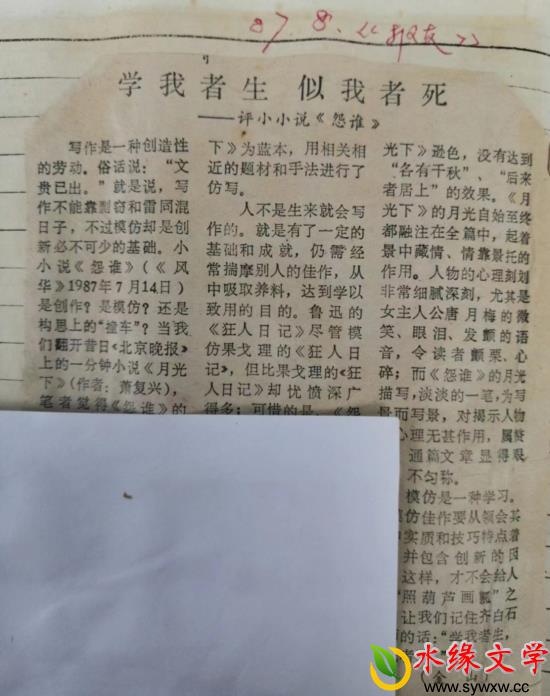 87.8.《报友》
学我者生 似我者死
——评小小说《怨谁》
写作是一种创造性
的劳动。俗话说：“文
贵已出。”就是说，写
作不能靠剽窃和雷同混
日子，不过模仿却是创
新必不可少的基础。小
小说《怨谁》（《风
华》1987年7月14日）
是创作？是模仿？还是
构思上的“撞车”？当我
们翻开昔日《北京晚报》
上的一分钟小说《月光
下》（作者：萧复兴），
笔者觉得《怨谁》的
下》为蓝本，用相关相
近的题材和手法进行了
仿写。
人不是生来就会写
作的。就是有了一定的
基础和成就，仍需经
常揣摩别人的佳作，从
中吸取养料，达到学以
致用的目的。鲁迅的
《狂人日记》尽管模
仿果戈理的《狂人日
记》，但比果戈理的《狂
人日记》却忧愤深广
得多；可惜的是，《怨
光下》逊色，没有达到
“各有千秋”、“后来
者居上”的效果。《月
光下》的月光自始至终
都融注在全篇中，起着
景中藏情、情靠景托的
作用。人物的心理刻划
非常细腻深刻，尤其是
女主人公唐月梅的微
笑、眼泪、发颤的语
音，令读者颤栗、心
碎；而《怨谁》的月光
描写，淡淡的一笔，为写
景而写景，对揭示人物
心理无甚作用，属赘
通篇文章显得艰
不匀称。
模仿是一种学习。
模仿佳作要从领会其
实质和技巧特点着
并包含创新的因
这样，才不会给人
“照葫芦画瓢”之
让我们记住齐白石
的话：“学我者生，
水缘文学
www.sywxw.cc